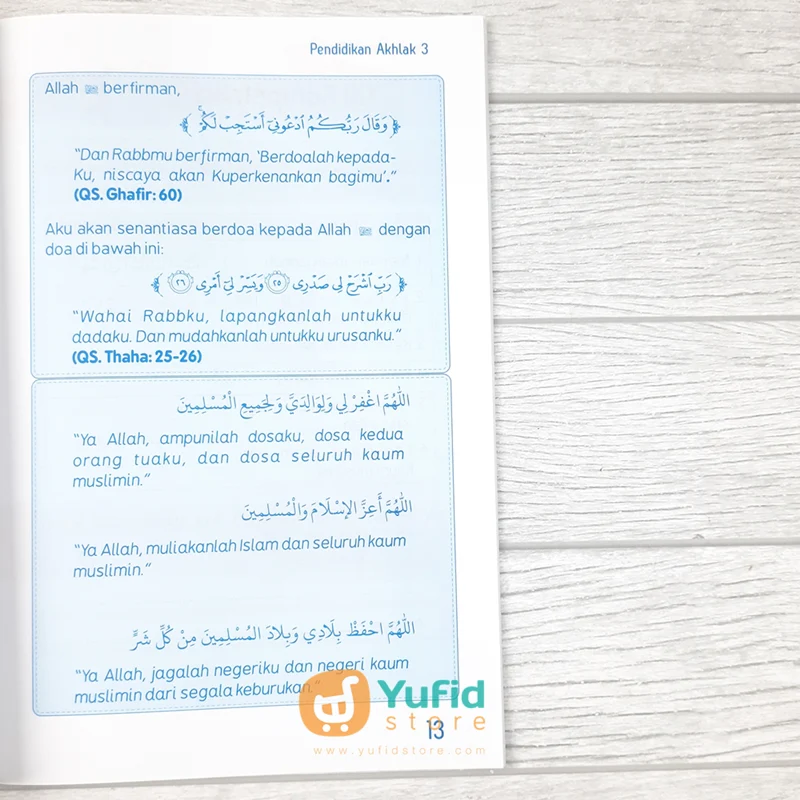 Pendidikan Akhlak 3
Allah ﷻ berfirman,
﴿ وَقَالَ رَبُّكُمُ ٱدْعُونِىٓ أَسْتَجِبْ لَكُمْ ۚ ﴾
“Dan Rabbmu berfirman, ‘Berdoalah kepada-
Ku, niscaya akan Kuperkenankan bagimu’.”
(QS. Ghafir: 60)
Aku akan senantiasa berdoa kepada Allah ﷻ dengan
doa di bawah ini:
﴿ رَبِّ ٱشْرَحْ لِى صَدْرِى ٢٥ وَيَسِّرْ لِىٓ أَمْرِى ٢٦ ﴾
“Wahai Rabbku, lapangkanlah untukku
dadaku. Dan mudahkanlah untukku urusanku.”
(QS. Thaha: 25-26)
اللَّهُمَّ اغْفِرْ لِي وَلِوَالِدَيَّ وَلِجَمِيعِ الْمُسْلِمِينَ
“Ya Allah, ampunilah dosaku, dosa kedua
orang tuaku, dan dosa seluruh kaum
muslimin.”
اللَّهُمَّ أَعِزَّ الإِسْلَامَ وَالْمُسْلِمِينَ
“Ya Allah, muliakanlah Islam dan seluruh kaum
muslimin.”
اللَّهُمَّ احْفَظْ بِلَادِي وَبِلَادَ المُسْلِمِينَ مِنْ كُلِّ شَرٍّ
“Ya Allah, jagalah negeriku dan negeri kaum
muslimin dari segala keburukan.”
Yufid
store
13
www.yufidstore.com